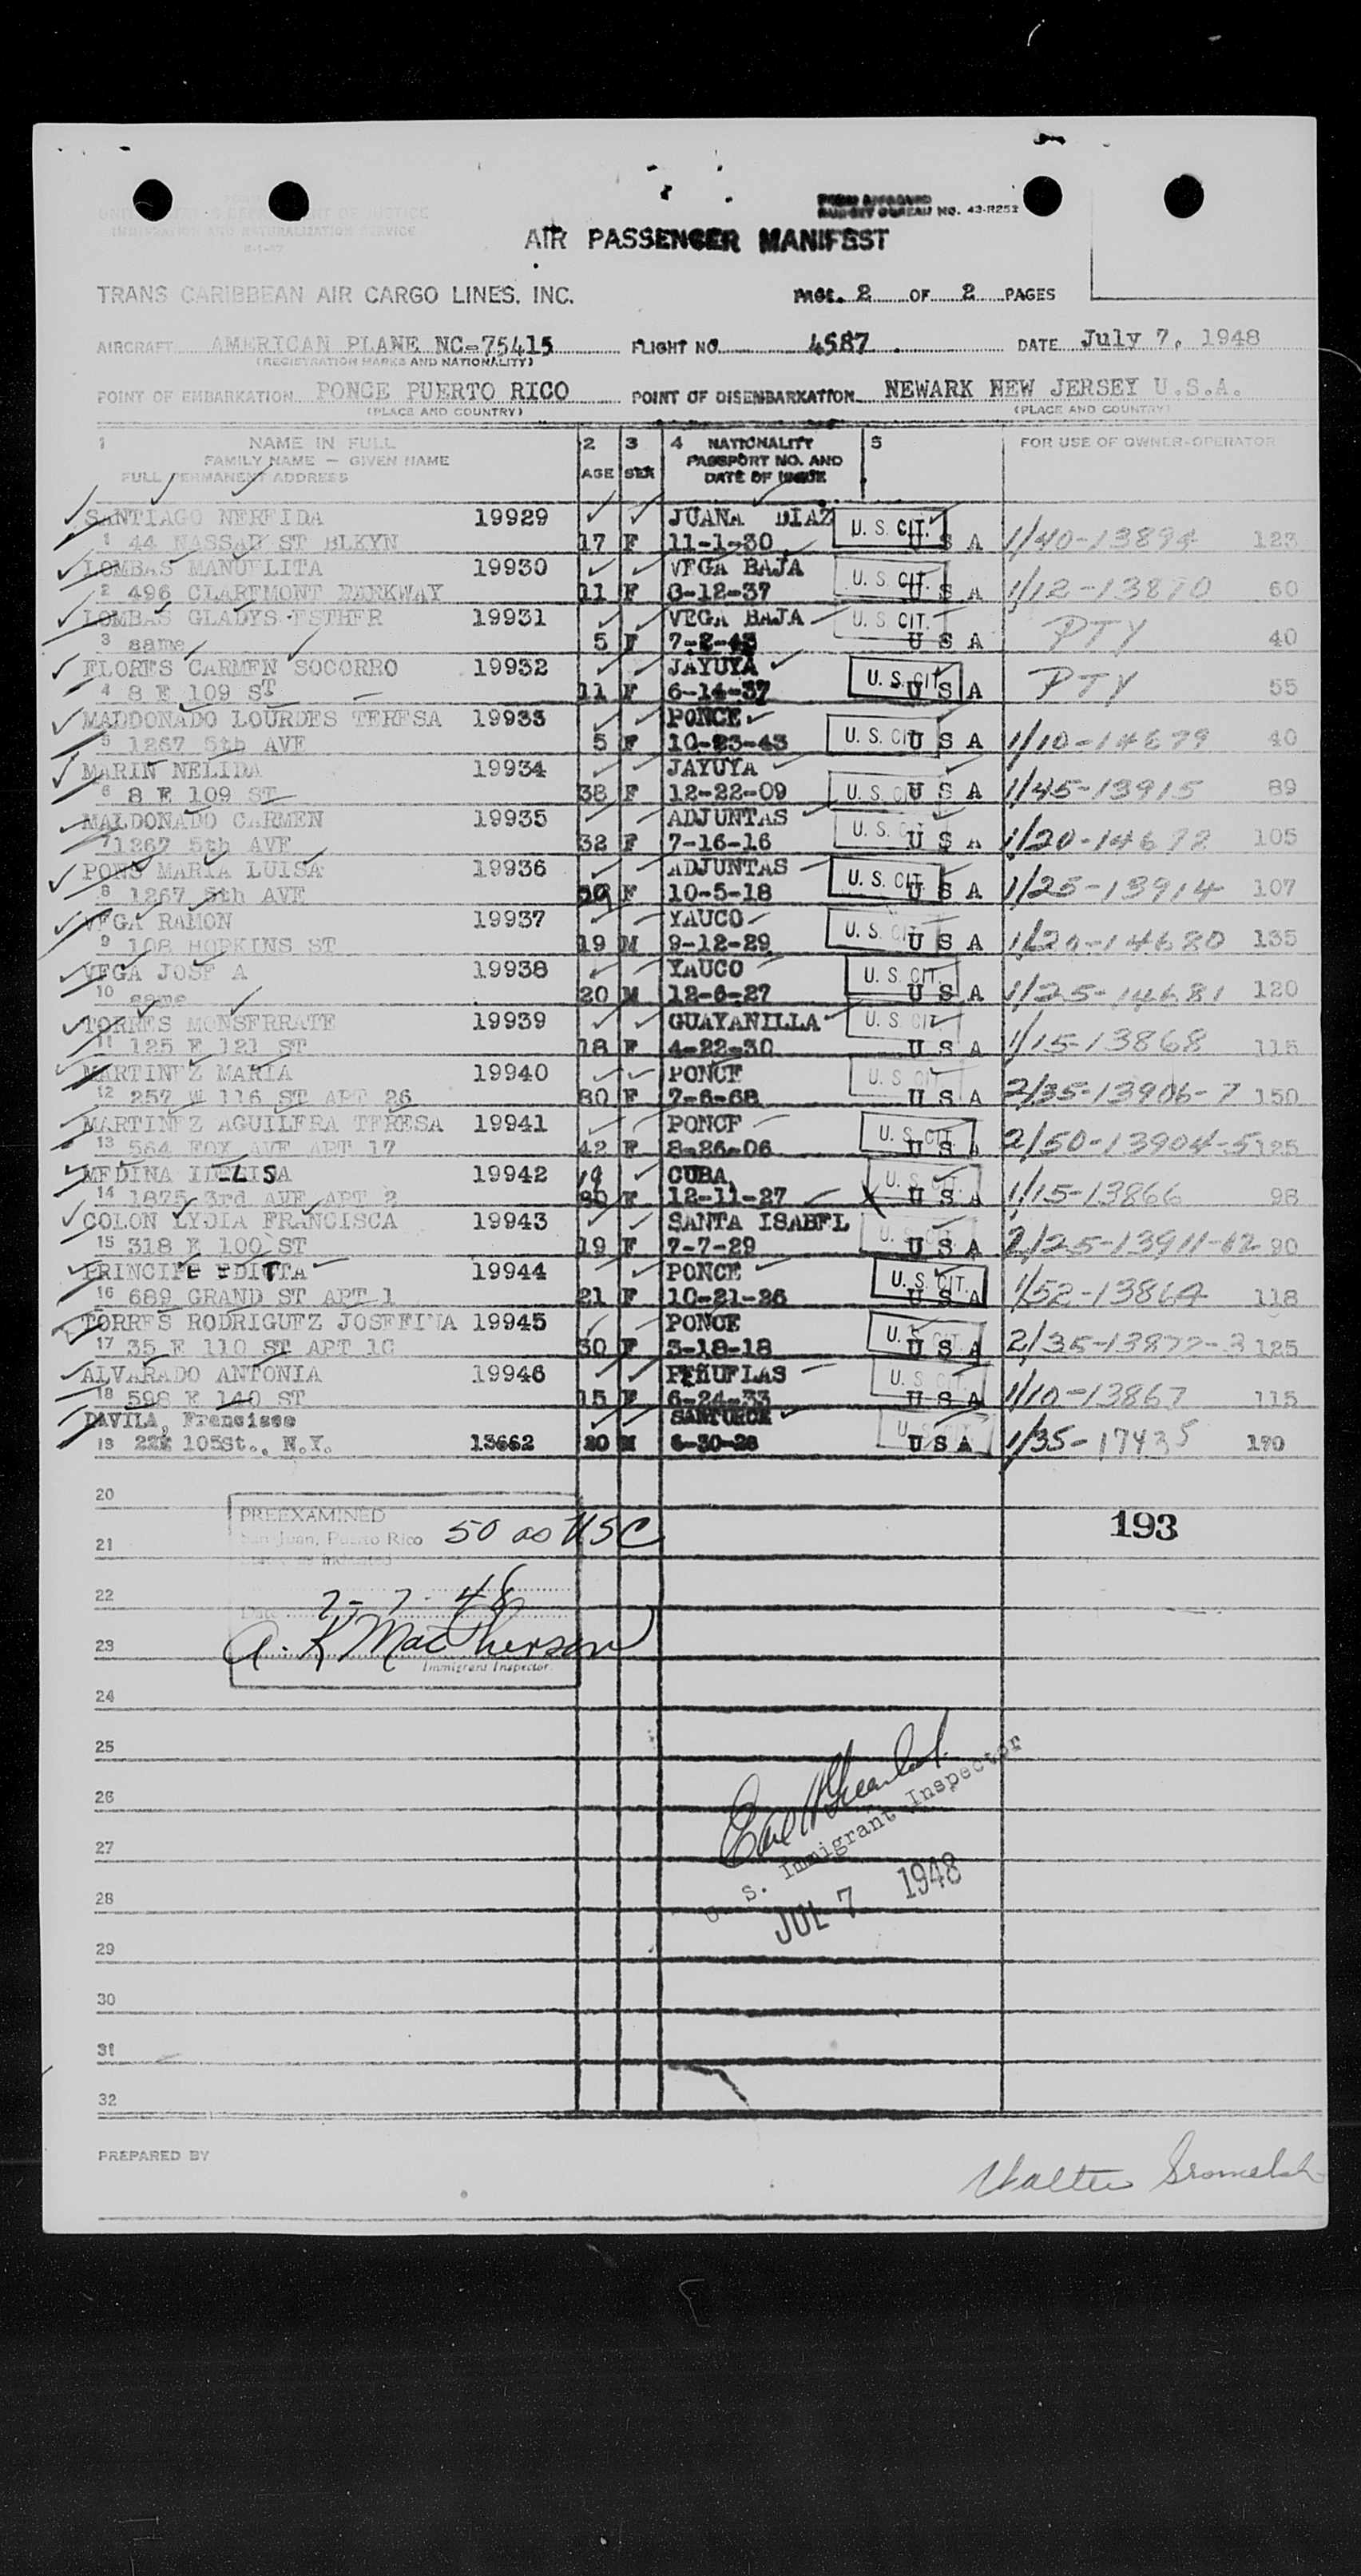 UNITED STATES DEPARTMENT OF JUSTICE
IMMIGRATION AND NATURALIZATION SERVICE
FORM APPROVED
BUDGET BUREAU NO. 43-R252
AIR PASSENGER MANIFEST
TRANS CARIBBEAN AIR CARGO LINES, INC. PAGE 2 OF 2 PAGES
AIRCRAFT AMERICAN PLANE NC-75415 FLIGHT NO. 4587 DATE July 7, 1948
(REGISTRATION MARKS AND NATIONALITY)
POINT OF EMBARKATION PONCE PUERTO RICO POINT OF DISEMBARKATION NEWARK NEW JERSEY U.S.A.
(PLACE AND COUNTRY) (PLACE AND COUNTRY)
1 NAME IN FULL 2 3 4 NATIONALITY 5 FOR USE OF OWNER-OPERATOR
FAMILY NAME — GIVEN NAME AGE SEX PASSPORT NO. AND
FULL PERMANENT ADDRESS DATE OF ISSUE
SANTIAGO NEREIDA 19929 JUANA DIAZ U. S. CIT.
1 44 NASSAU ST BLKYN 17 F 11-1-30 U S A 1/40-13894 123
LOMBAS MANUELITA 19930 VEGA BAJA U. S. CIT.
2 496 CLAREMONT PARKWAY 11 F 3-12-37 U S A 1/12-13870 60
LOMBAS GLADYS ESTHER 19931 VEGA BAJA U. S. CIT.
3 same 5 F 7-2-43 U S A PTY 40
FLORES CARMEN SOCORRO 19932 JAYUYA U. S. CIT.
4 8 E 109 ST 11 F 6-14-37 U S A PTY 55
MALDONADO LOURDES TERESA 19933 PONCE U. S. CIT.
5 1267 5th AVE 5 F 10-23-43 U S A 1/10-14679 40
MARIN NELIDA 19934 JAYUYA U. S. CIT.
6 8 E 109 ST 38 F 12-22-09 U S A 1/45-13915 89
MALDONADO CARMEN 19935 ADJUNTAS U. S. CIT.
7 1267 5th AVE 32 F 7-16-16 U S A 1/20-14678 105
PONS MARIA LUISA 19936 ADJUNTAS U. S. CIT.
8 1267 5th AVE 29 F 10-5-18 U S A 1/25-13914 107
VEGA RAMON 19937 YAUCO U. S. CIT.
9 108 HOPKINS ST 19 M 9-12-29 U S A 1/20-14680 135
VEGA JOSE A 19938 YAUCO U. S. CIT.
10 same 20 M 12-6-27 U S A 1/25-14681 120
TORRES MONSERRATE 19939 GUAYANILLA U. S. CIT.
11 125 E 121 ST 18 F 4-22-30 U S A 1/15-13868 115
MARTINEZ MARIA 19940 PONCE U. S. CIT.
12 257 W 116 ST APT 26 80 F 7-6-68 U S A 2/35-13906-7 150
MARTINEZ AGUILERA TERESA 19941 PONCE U. S. CIT.
13 564 FOX AVE APT 17 42 F 8-26-06 U S A 2/50-13904-5 125
MEDINA IDELISA 19942 19 CUBA U. S. CIT.
14 1875 3rd AVE APT 2 20 F 12-11-27 U S A 1/15-13866 98
COLON LYDIA FRANCISCA 19943 SANTA ISABEL U. S. CIT.
15 318 E 100 ST 19 F 7-7-29 U S A 2/25-13911-12 90
PRINCIPE EDITTA 19944 PONCE U. S. CIT.
16 689 GRAND ST APT 1 21 F 10-21-26 U S A 1/52-13864 118
TORRES RODRIGUEZ JOSEFINA 19945 PONCE U. S. CIT.
17 35 E 110 ST APT 1C 30 F 3-18-18 U S A 2/35-13872-3 125
ALVARADO ANTONIA 19946 PEÑUELAS U. S. CIT.
18 598 E 140 ST 15 F 6-24-33 U S A 1/10-13867 115
DAVILA, Francisco SANTURCE U. S. CIT.
19 222 105St., N.Y. 13662 20 M 6-30-28 U S A 1/35-17435 190
20
PREEXAMINED
193
San Juan, Puerto Rico 50 as USC
21
22
Date 7-7-48
23 A. K. MacPherson
Immigrant Inspector.
24
25
26
27
U. S. Immigrant Inspector
28
JUL 7 1948
29
30
31
32
PREPARED BY
Walter